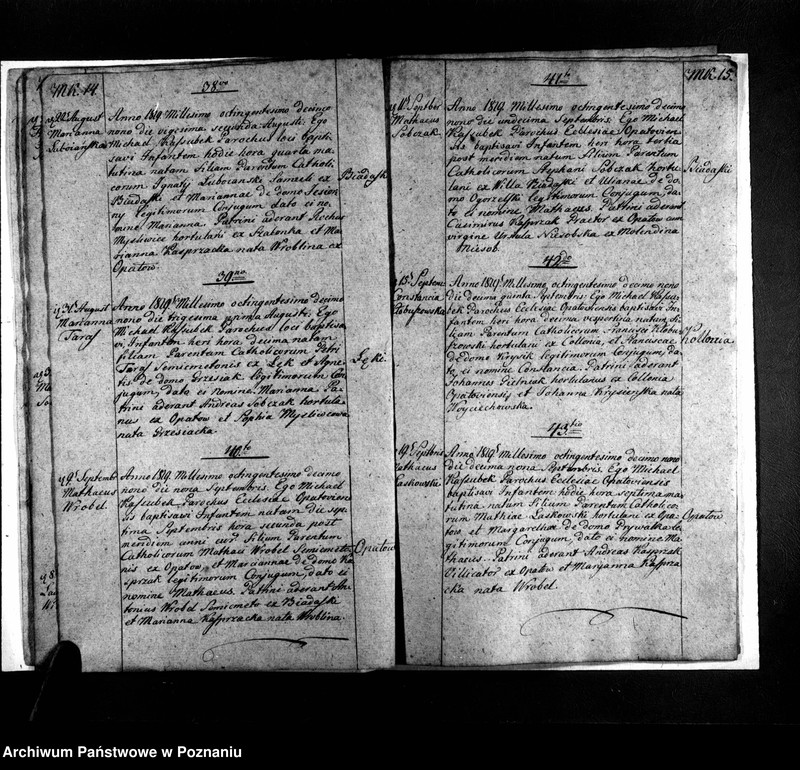 MK. 14
38vo
22 August
Marianna
Anno 1819 Millesimo octingentesimo decimo
nono die vigesima secunda Augusti. Ego
Michael Kassubek Parochus loci bapti
savi Infantem hodie hora quarta ma
tutina natam Filiam Parentum Catholi
corum Ignatij Lubocanski Famuli ex
Biadaszki et Mariannae de domo
legitimorum Conjugum dato ei no
mine Marianna. Patrini aderant Rochus
Mysliwiec hortulani ex et Ma
rianna Kasprzacka nata Wroblina ex
Opatow.
Biadaszki
39no
31 August
Marianna
Taras
Anno 1819 Millesimo octingentesimo decimo
nono die trigesima prima Augusti. Ego
Michael Kassubek Parochus loci baptisa
vi Infantem heri hora decima natam
filiam Parentum Catholicorum Petri
Taras Semicmetonis ex Lęk et Agne
tis de domo Grzesiak legitimorum Con
jugum, dato ei nomine Marianna Pa
trini aderant Andreas Sobczak hortula
nus ex Opatow et Sophia Mysliwcowa
nata Grzesiacka.
Lęki
40to
9 Septembr
Mathaeus
Wrobel.
Anno 1819. Millesimo octingentesimo decimo
nono die nona Septembris. Ego Michael
Kassubek Parochus Ecclesiae Opatovien
sis baptisavi Infantem natum die sep
tima Septembris hora secunda post
meridiem anni Filium Parentum
Catholicorum Mathaei Wrobel Semicmeto
nis ex Opatow et Mariannae de domo Ka
sprzak legitimorum Conjugum, dato ei
nomine Mathaeus. Patrini aderant An
tonius Wrobel Semicmeto ex Biadaszki
et Marianna Kasprzacka nata Wroblina.
Opatow
MK. 15.
41
11 Septbr
Mathaeus
Sobczak
Anno 1819 Millesimo octingentesimo decimo
nono die undecima Septembris. Ego Michael
Kassubek Parochus Ecclesiae Opatovien
sis baptisavi Infantem heri hora tertia
post meridiem natum Filium Parentum
Catholicorum Stephani Sobczak hortu
lani ex Villa Biadaszki et Julianae de do
mo Ogorzelski legitimorum Conjugum, da
to ei nomine Mathaeus. Patrini aderant
Casimirus Kasprzak Praetor ex Opatow cum
virgine Ursula Niesobska ex Molendino
Niesob.
Biadaszki
42do
15 Septem
Constancia
Anno 1819 Millesimo octingentesimo decimo nono
die decima quinta Septembris: Ego Michael Kassu
bek Parochus Ecclesiae Opatoviensis baptisavi In
fantem heri hora decima vespertina natam fi
liam Parentum Catholicorum Francisci
hortulani ex Collonia, et Franciscae
de domo Krysik legitimorum Conjugum, da
to ei nomine Constancia. Patrini aderant
Johannes Pietniak hortulanus ex Collonia
Opatoviensis et Johanna Krysienska nata
Woyciechowska.
Kollonia
43tio
19 Septbris
Mathaeus
Laskowski
Anno 1819 Millesimo octingentesimo decimo nono
die decima nona Septembris. Ego Michael
Kassubek Parochus Ecclesiae Opatoviensis
baptisavi Infantem hodie hora septima ma
tutina natum Filium Parentum Catholico
rum Mathiae Laskowski hortulani ex Opa
tow et Margarethae de domo Przywalka le
gitimorum Conjugum, dato ei nomine Ma
thaeus. Patrini aderant Andreas Kasprzak
Villicator ex Opatow et Marjanna Kasprza
cka nata Wrobel.
Opatow
Archiwum Państwowe w Poznaniu